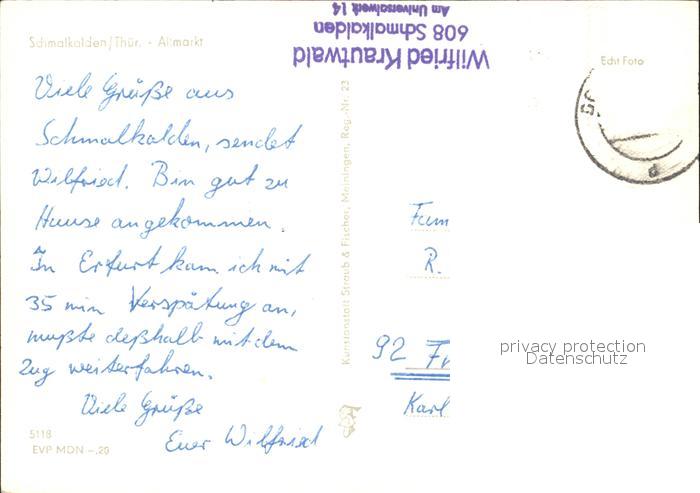 Am Universalwerk 14
608 Schmalkalden
Wilfried Krautwald
Schmalkalden/Thür. - Altmarkt
Echt Foto
Viele Grüße aus
Schmalkalden, sendet
Wilfried. Bin gut zu
Hause angekommen.
In Erfurt kam ich mit
35 min Verspätung an,
mußte deßhalb mit dem
Zug weiterfahren.
Viele Grüße
Euer Wilfried
5118
EVP MDN -.20
Kunstanstalt Straub & Fischer, Meiningen, Reg.-Nr. 23
Fam
R.
92 Fr
Karl
privacy protection
Datenschutz